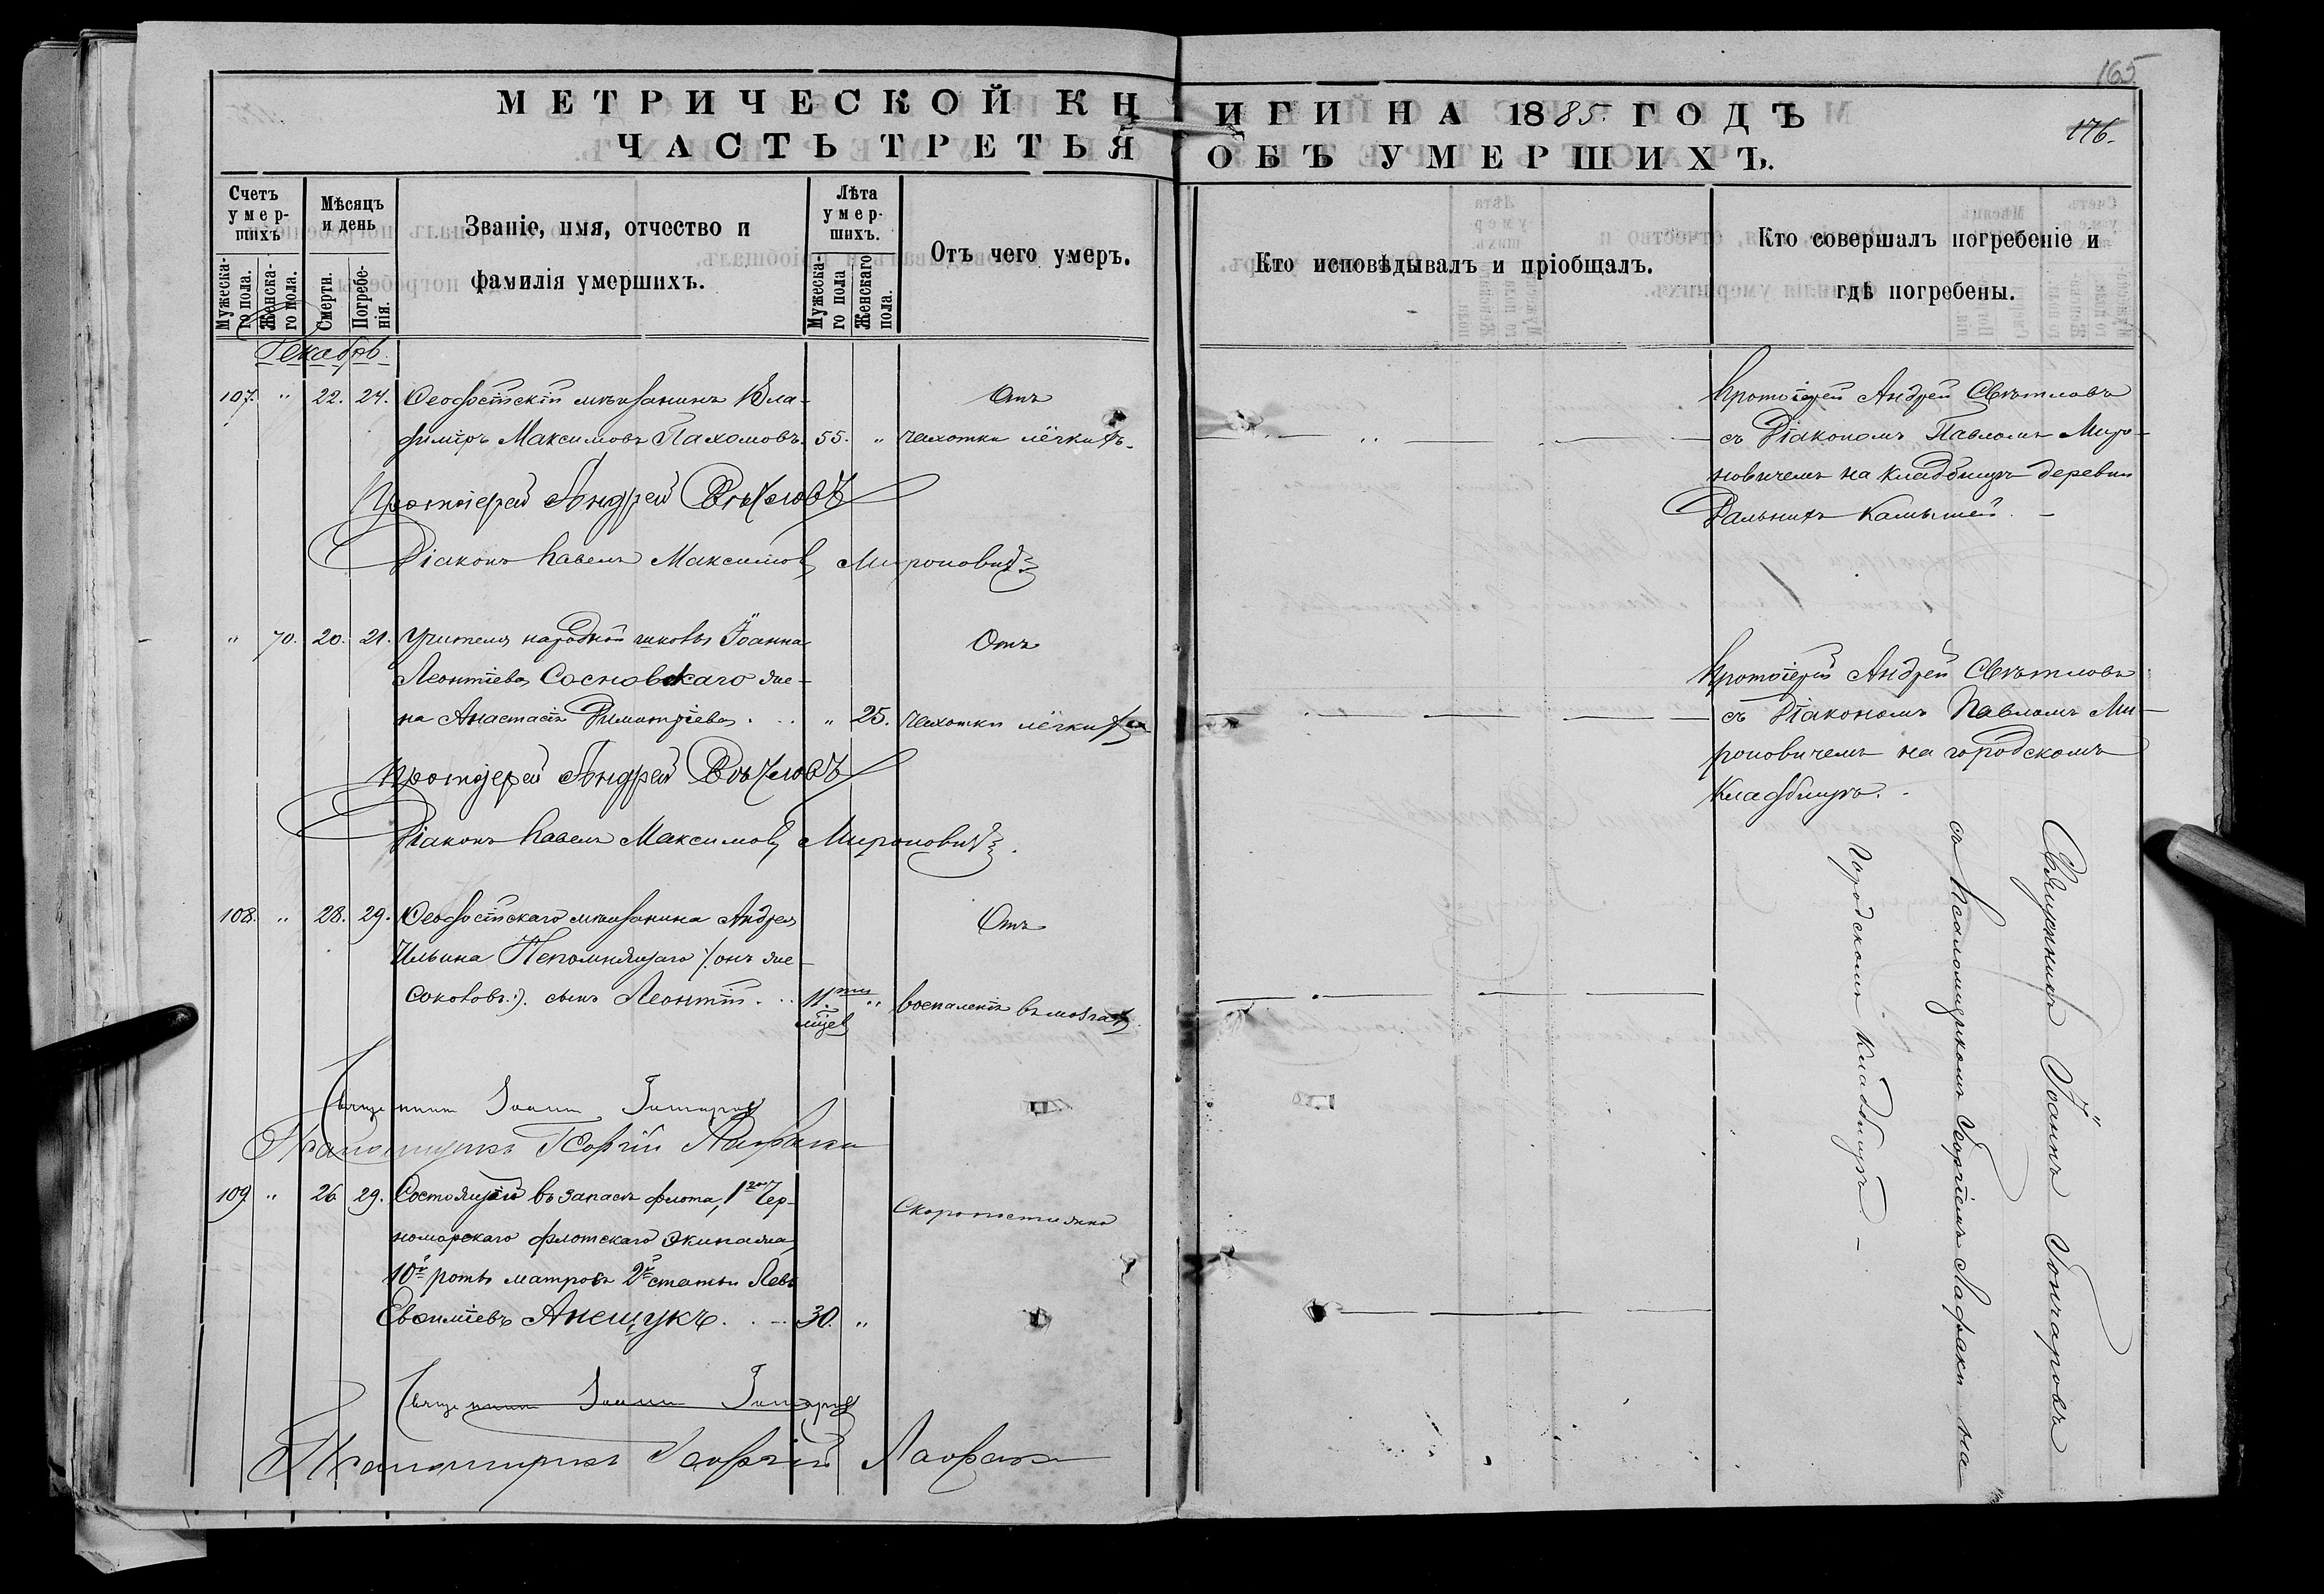 165
МЕТРИЧЕСКОЙ КНИГИ НА 1885 ГОДЪ
176.
ЧАСТЬ ТРЕТЬЯ ОБЪ УМЕРШИХЪ.
Счетъ умер-шихъ
Мужеска-го пола.
Женска-го пола.
Мѣсяцъ и день
Смерти.
Погребе-нія.
Званіе, имя, отчество и
фамилія умершихъ.
Лѣта умер-шихъ.
Мужеска-го пола
Женскаго пола.
Отъ чего умеръ.
Кто исповѣдывалъ и пріобщалъ.
Кто совершалъ погребеніе и
гдѣ погребены.
Декабрь.
107. " 22. 24. Ѳеодосійскій мѣщанинъ Вла-
димiръ Максимовъ Пахомовъ. 55. "
Отъ
чахотки лёгкихъ.
Протоіерей Андрей Свѣтловъ
съ Діакономъ Павломъ Миро-
новичемъ на кладбищѣ деревни
Дальнихъ Камышей.
Протоіерей Андрей Свѣтловъ
Діаконъ Павелъ Максимовъ Мироновичъ
" 70. 20. 21. Учителя народной школы Іоанна
Леонтіева Сосновскаго же-
на Анастасія Димитріева. " 25.
Отъ
чахотки лёгкихъ
Протоіерей Андрей Свѣтловъ
съ Діакономъ Павломъ Ми-
роновичемъ на городскомъ
кладбищѣ.
Протоіерей Андрей Свѣтловъ
Діаконъ Павелъ Максимовъ Мироновичъ.
108. " 28. 29. Ѳеодосійскаго мѣщанина Андрея
Ильина Непомнящаго /: онъ же
Соколовъ :). сынъ Леонтій. 11.ти "
мцев
Отъ
воспаленія въ мозгахъ.
Священникъ Іоаннъ Гончаровъ
Псаломщикъ Георгій Лафаки
109 " 26 29. Состоящій въ запасѣ флота, 1го Чер-
номорскаго флотскаго экипажа
10й роты матросъ 2й статьи Левъ
Евѳиміевъ Анещукъ. 30. "
Скоропостижно
Священникъ Іоаннъ Гончаровъ
съ Псаломщикомъ Георгіемъ Лафаки на
Городскомъ кладбищѣ.
Священникъ Іоаннъ Гончаровъ
Псаломщикъ Георгій Лафаки